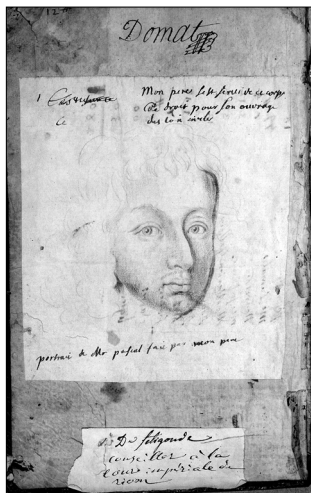 Domat
Mon pere s'est servi de ce corps
de droit pour son ouvrage
des loix civiles
portrait de Mr pascal fait par mon pere
De féligonde
conseiller à la
cour impériale de
riom